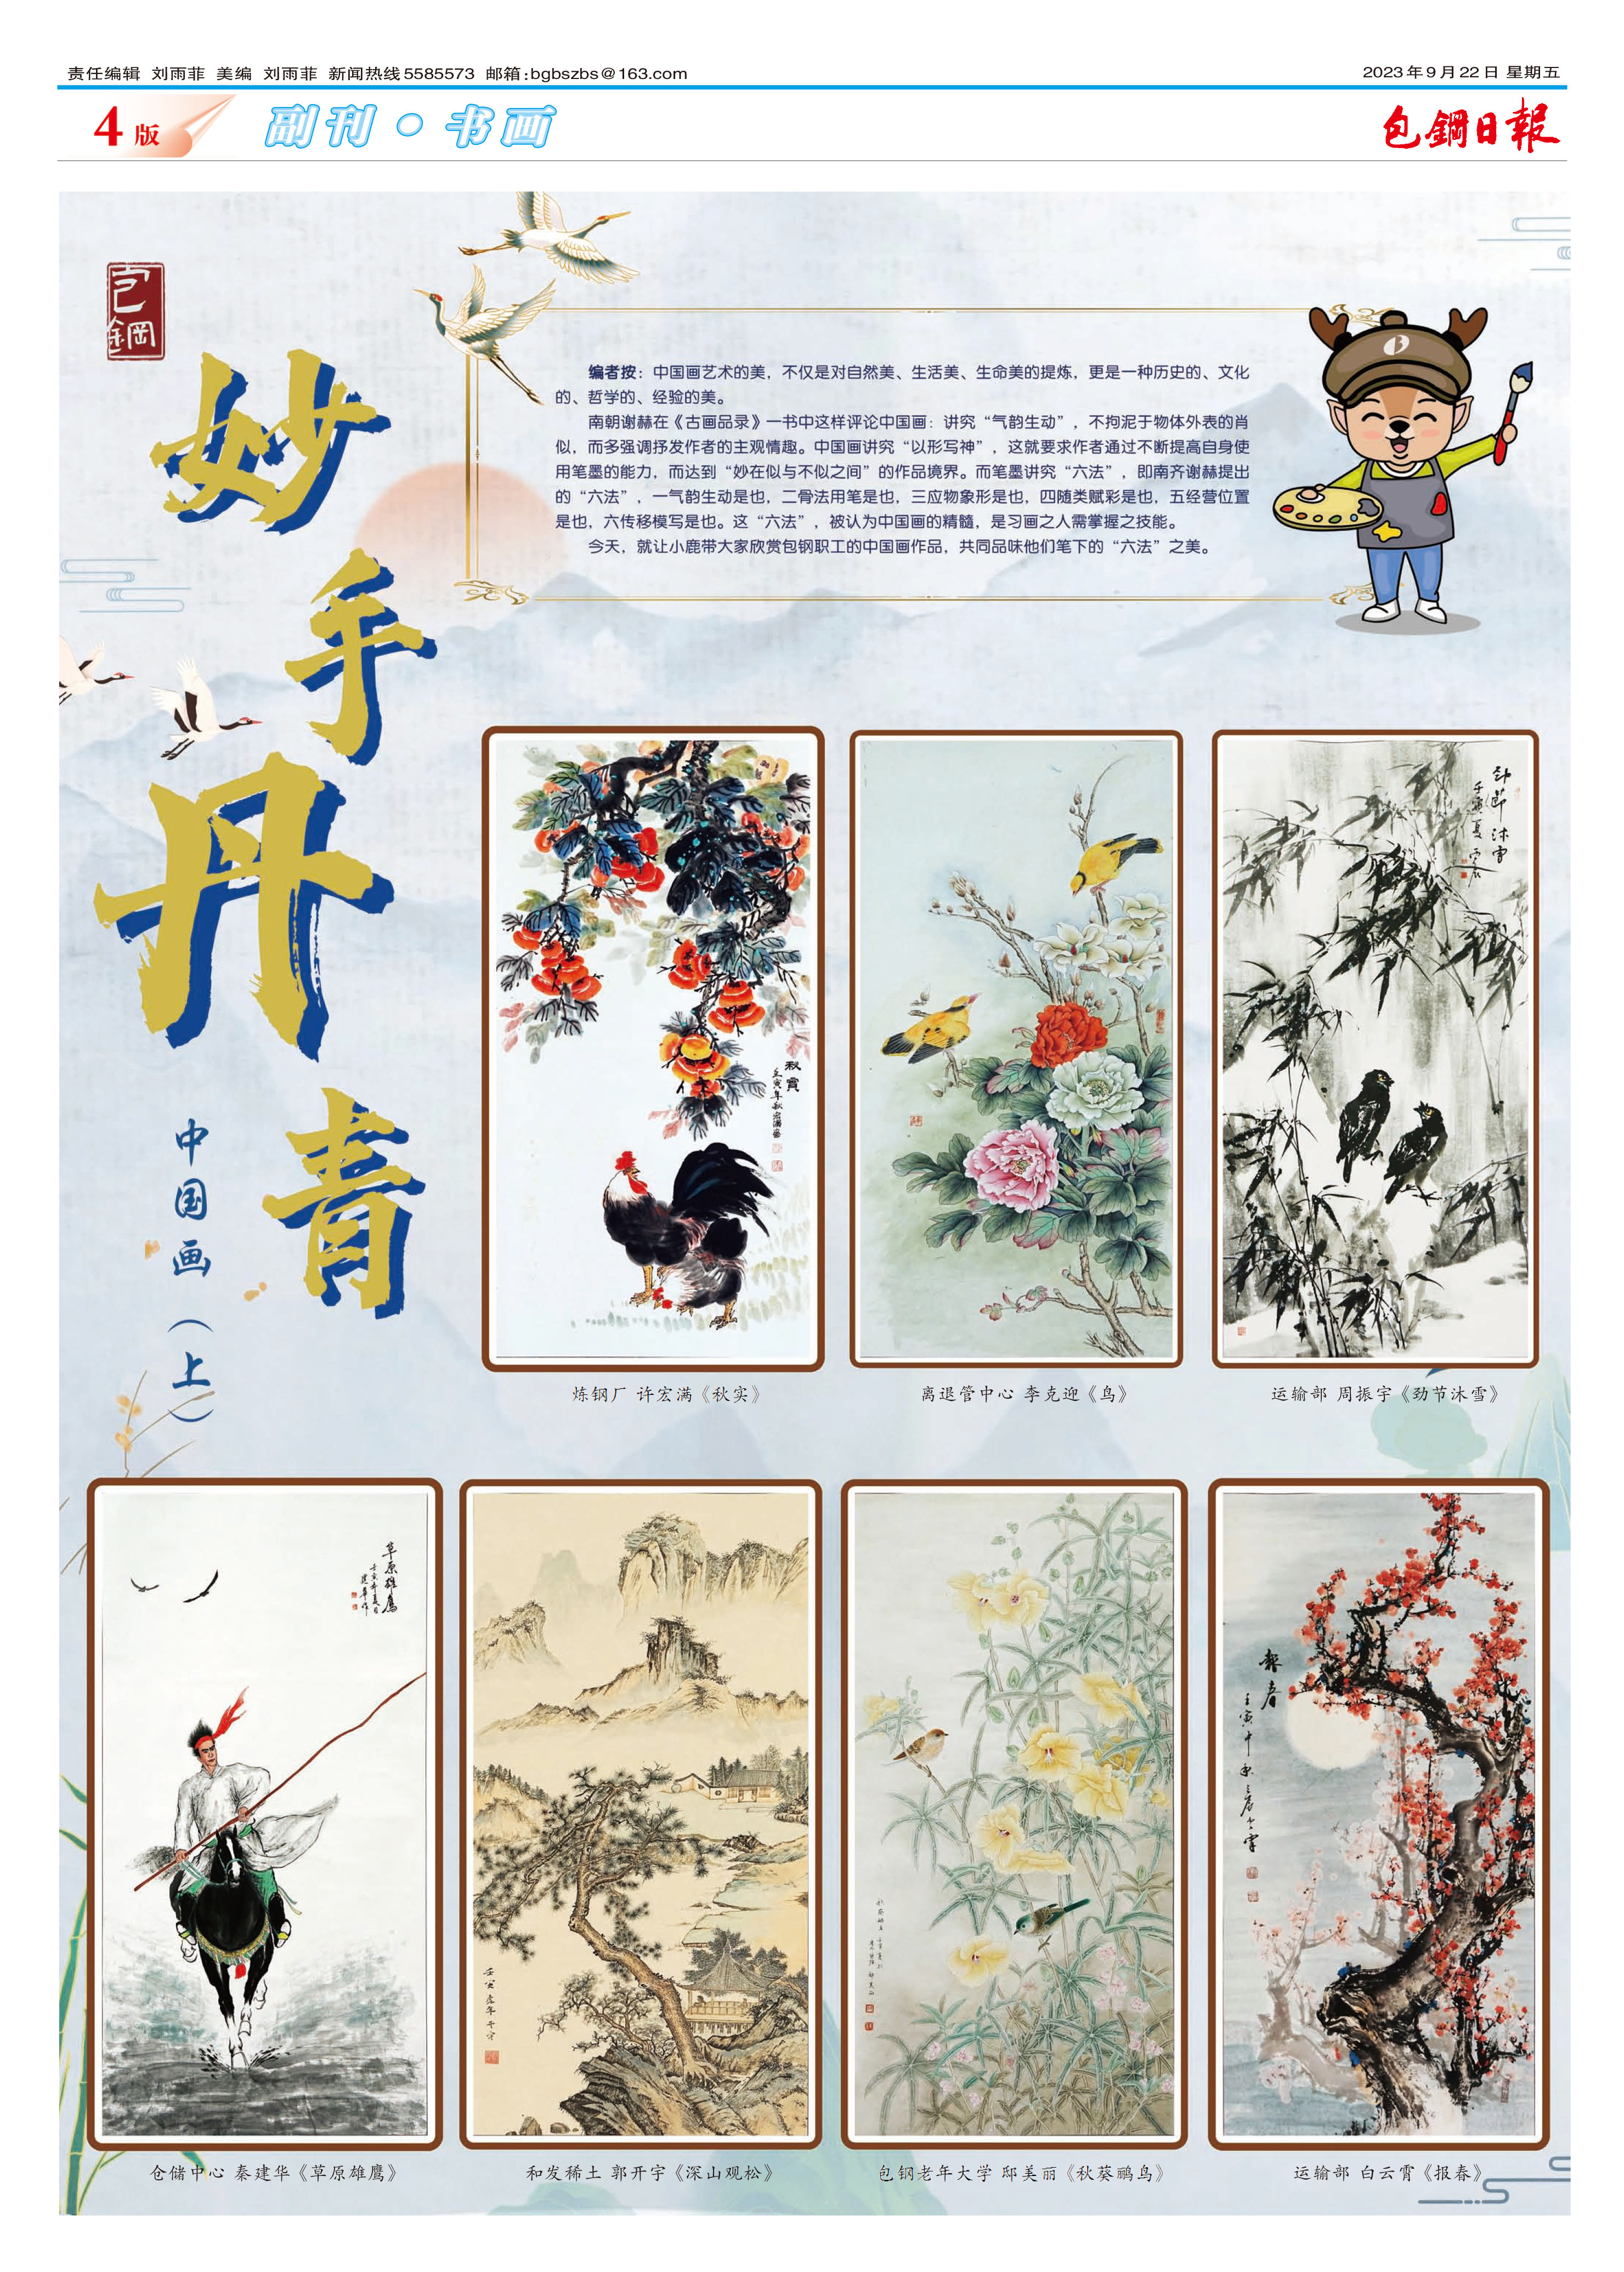 责任编辑 刘雨菲 美编 刘雨菲 新闻热线5585573 邮箱:bgbszbs@163.com
2023年9月22日 星期五
4版
副刊·书画
包鋼日報
包鋼
妙手丹青
中国画(上)
编者按:中国画艺术的美,不仅是对自然美、生活美、生命美的提炼,更是一种历史的、文化
的、哲学的、经验的美。
南朝谢赫在《古画品录》一书中这样评论中国画:讲究“气韵生动”,不拘泥于物体外表的肖
似,而多强调抒发作者的主观情趣。中国画讲究“以形写神”,这就要求作者通过不断提高自身使
用笔墨的能力,而达到“妙在似与不似之间”的作品境界。而笔墨讲究“六法”,即南齐谢赫提出
的“六法”,一气韵生动是也,二骨法用笔是也,三应物象形是也,四随类赋彩是也,五经营位置
是也,六传移模写是也。这“六法”,被认为中国画的精髓,是习画之人需掌握之技能。
今天,就让小鹿带大家欣赏包钢职工的中国画作品,共同品味他们笔下的“六法”之美。
秋實
壬寅年秋宏满画
炼钢厂 许宏满《秋实》
离退管中心 李克迎《鸟》
劲節沐雪
壬寅夏
运输部 周振宇《劲节沐雪》
草原雄鹰
仓储中心 秦建华《草原雄鹰》
和发稀土 郭开宇《深山观松》
包钢老年大学 邸美丽《秋葵鹂鸟》
報春
运输部 白云霄《报春》